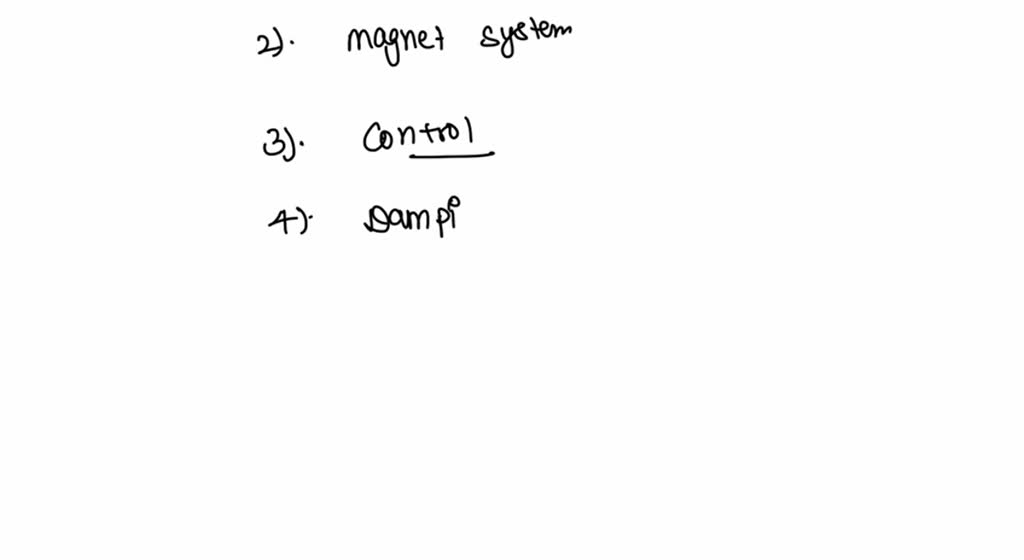 2). magnet system
3). Control
4). Dampi